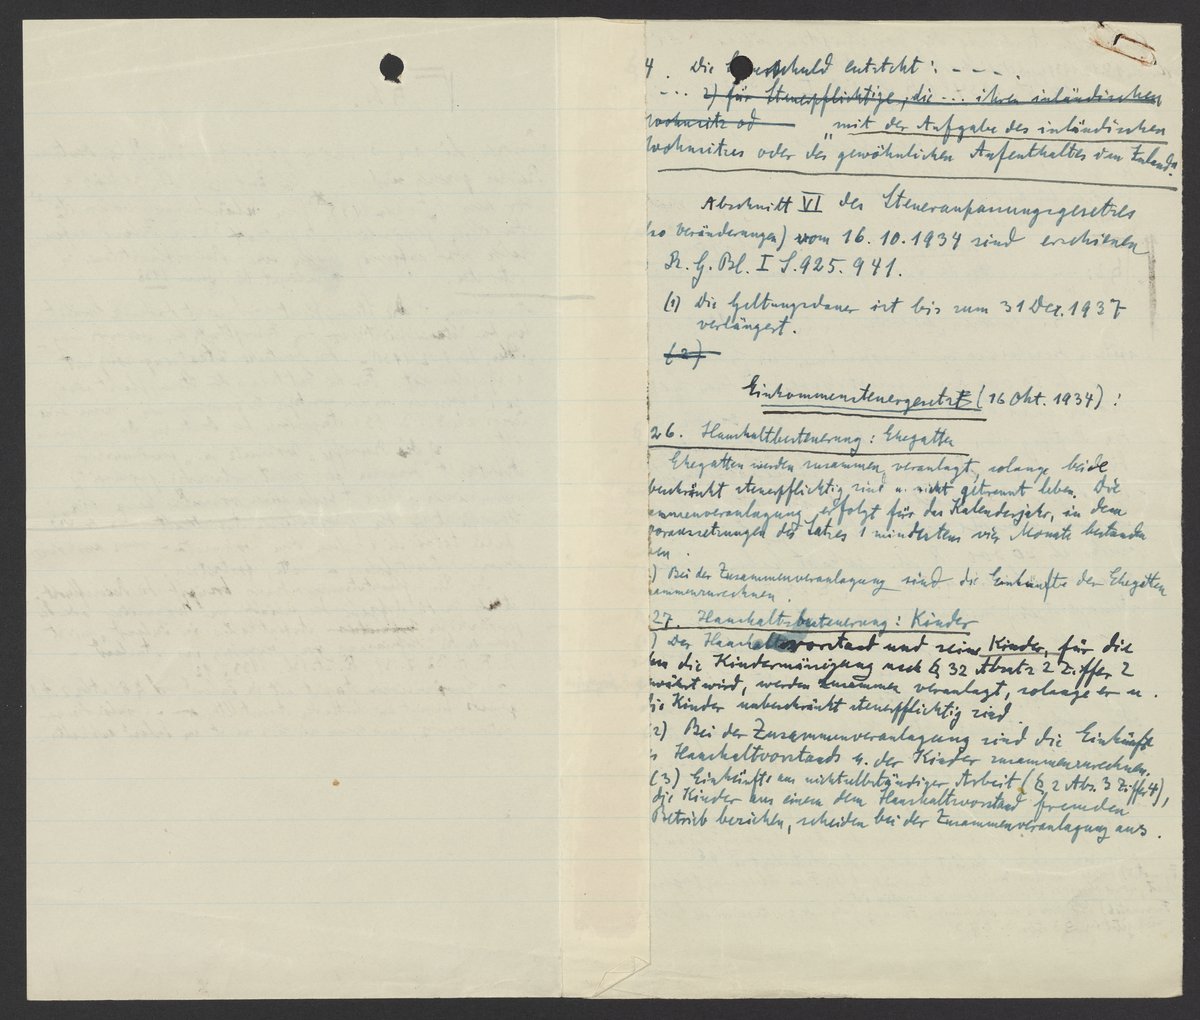 4. Die Steuerschuld entsteht: - - - .
- - - 2) für Steuerpflichtige, die ... ihren inländischen
Wohnsitz od „mit der Aufgabe des inländischen
Wohnsitzes oder des gewöhnlichen Aufenthaltes im Inland."
Abschnitt VI des Steueranpassungsgesetzes
Veränderungen) vom 16.10.1934 sind erschienen
R. G. Bl. I S. 925. 941.
(1) Die Geltungsdauer ist bis zum 31 Dez. 1937
verlängert.
(2)
Einkommensteuergesetz (16 Okt. 1934):
26. Haushaltbesteuerung: Ehegatten
Ehegatten werden zusammen veranlagt, solange beide
beschränkt steuerpflichtig sind u. nicht getrennt leben. Die
ammenveranlagung erfolgt für das Kalenderjahr, in dem
oraussetzungen des Satzes 1 mindestens vier Monate bestanden
en.
) Bei der Zusammenveranlagung sind die Einkünfte der Ehegatten
ammenzurechnen.
27. Haushaltsbesteuerung: Kinder
) Der Haushaltsvorstand und seine Kinder, für die
die Kinderermässigung nach § 32 Absatz 2 Ziffer 2
währt wird, werden zusammen veranlagt, solange er u.
die Kinder unbeschränkt steuerpflichtig sind
2) Bei der Zusammenveranlagung sind die Einkünfte
s Haushaltvorstands u. der Kinder zusammenzurechnen.
(3) Einkünfte aus nichtselbständiger Arbeit (§ 2 Abs. 3 Ziffer 4),
die Kinder aus einem dem Haushaltsvorstand fremden
Betrieb beziehen, scheiden bei der Zusammenveranlagung aus.